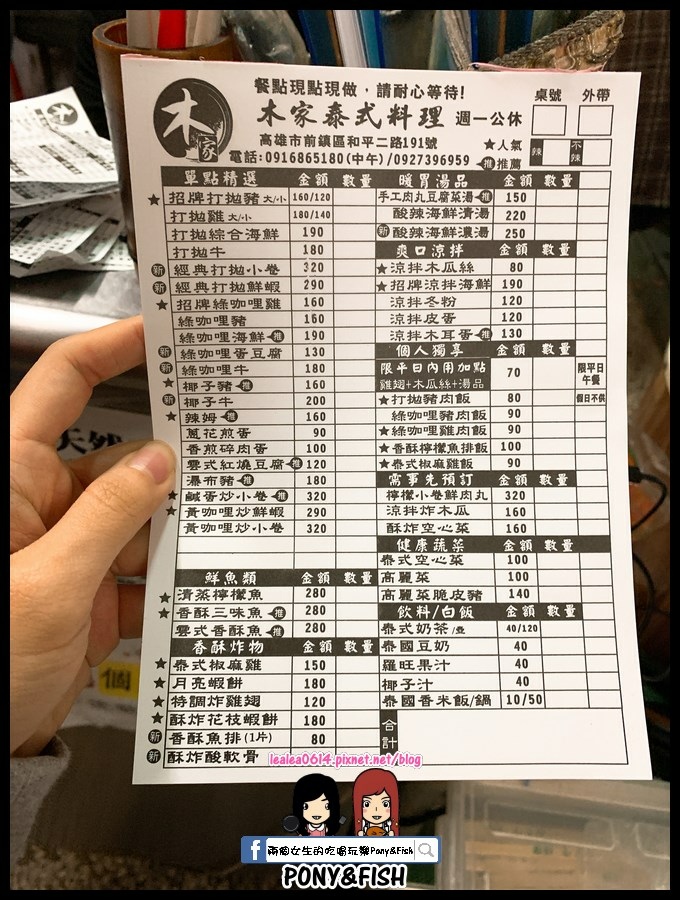 餐點現點現做，請耐心等待!
木家
木家泰式料理 週一公休
桌號 外帶
高雄市前鎮區和平二路191號
★人氣
推 推薦
辣 不辣
電話:0916865180(中午)/0927396959
單點精選 金額 數量
★ 招牌打拋豬 大/小 160/120
打拋雞 大/小 180/140
打拋綜合海鮮 190
打拋牛 180
新 經典打拋小卷 320
新 經典打拋鮮蝦 290
★ 招牌綠咖哩雞 160
綠咖哩豬 150
綠咖哩海鮮 推 190
新 綠咖哩蛋豆腐 130
新 綠咖哩牛 180
★ 椰子豬 推 160
新 椰子牛 200
★ 辣姆 推 160
蔥花煎蛋 90
香煎碎肉蛋 100
雲式紅燒豆腐 推 120
瀑布豬 推 180
★ 鹹蛋炒小卷 推 320
★ 黃咖哩炒鮮蝦 290
黃咖哩炒小卷 320
鮮魚類 金額 數量
★ 清蒸檸檬魚 280
★ 香酥三味魚 推 280
雲式香酥魚 推 280
香酥炸物 金額 數量
★ 泰式椒麻雞 150
★ 月亮蝦餅 180
★ 特調炸雞翅 120
★ 酥炸花枝蝦餅 180
新 香酥魚排(1片) 80
新 酥炸酸軟骨
暖胃湯品 金額 數量
手工肉丸豆腐菜湯 推 150
酸辣海鮮清湯 220
新 酸辣海鮮濃湯 250
爽口涼拌 金額 數量
★ 涼拌木瓜絲 80
★ 招牌涼拌海鮮 190
涼拌冬粉 120
涼拌皮蛋 120
涼拌木耳蛋 推 130
個人獨享 金額 數量
限平日內用加點
雞翅+木瓜絲+湯品 70 限平日午餐
★ 打拋豬肉飯 80 假日不供
綠咖哩豬肉飯 90
★ 綠咖哩雞肉飯 90
★ 香酥檸檬魚排飯 100
★ 泰式椒麻雞飯 90
需事先預訂 金額 數量
檸檬小卷鮮肉丸 320
涼拌炸木瓜 160
酥炸空心菜 160
健康蔬菜 金額 數量
泰式空心菜 100
高麗菜 100
高麗菜脆皮豬 140
飲料/白飯 金額 數量
泰式奶茶 /壺 40/120
泰國豆奶 40
羅旺果汁 40
椰子汁 40
泰國香米飯/鍋 10/50
合計
lealea0614.pixnet.net/blog
f 兩個女生的吃喝玩樂Pony&Fish
PONY&FISH